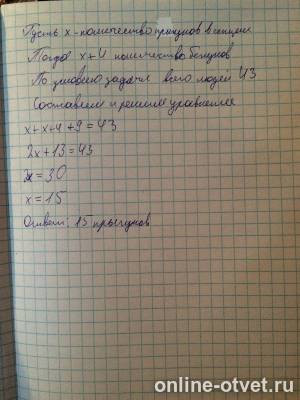 Пусть x - количество прыгунов в секции
Тогда x+4 количество бегунов
По условию задачи всего людей 43
Составляем и решаем уравнение
x+x+4+9=43
2x+13=43
x=30
x=15
Ответ: 15 прыгунов
online-otvet.ru